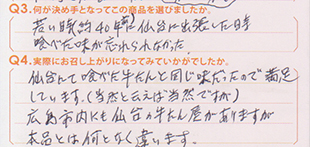 Q3.何が決め手となってこの商品を選びましたか。
若い時約40年前に仙台に出張した時
喰べた味が忘れられなかった.
Q4.実際にお召し上がりになってみていかがでしたか。
仙台で喰べた牛たんと同じ味だったので満足
しています.(当然と云えば当然ですが)
広島市内にも仙台の牛たん屋がありますが
本品とは何となく違います.